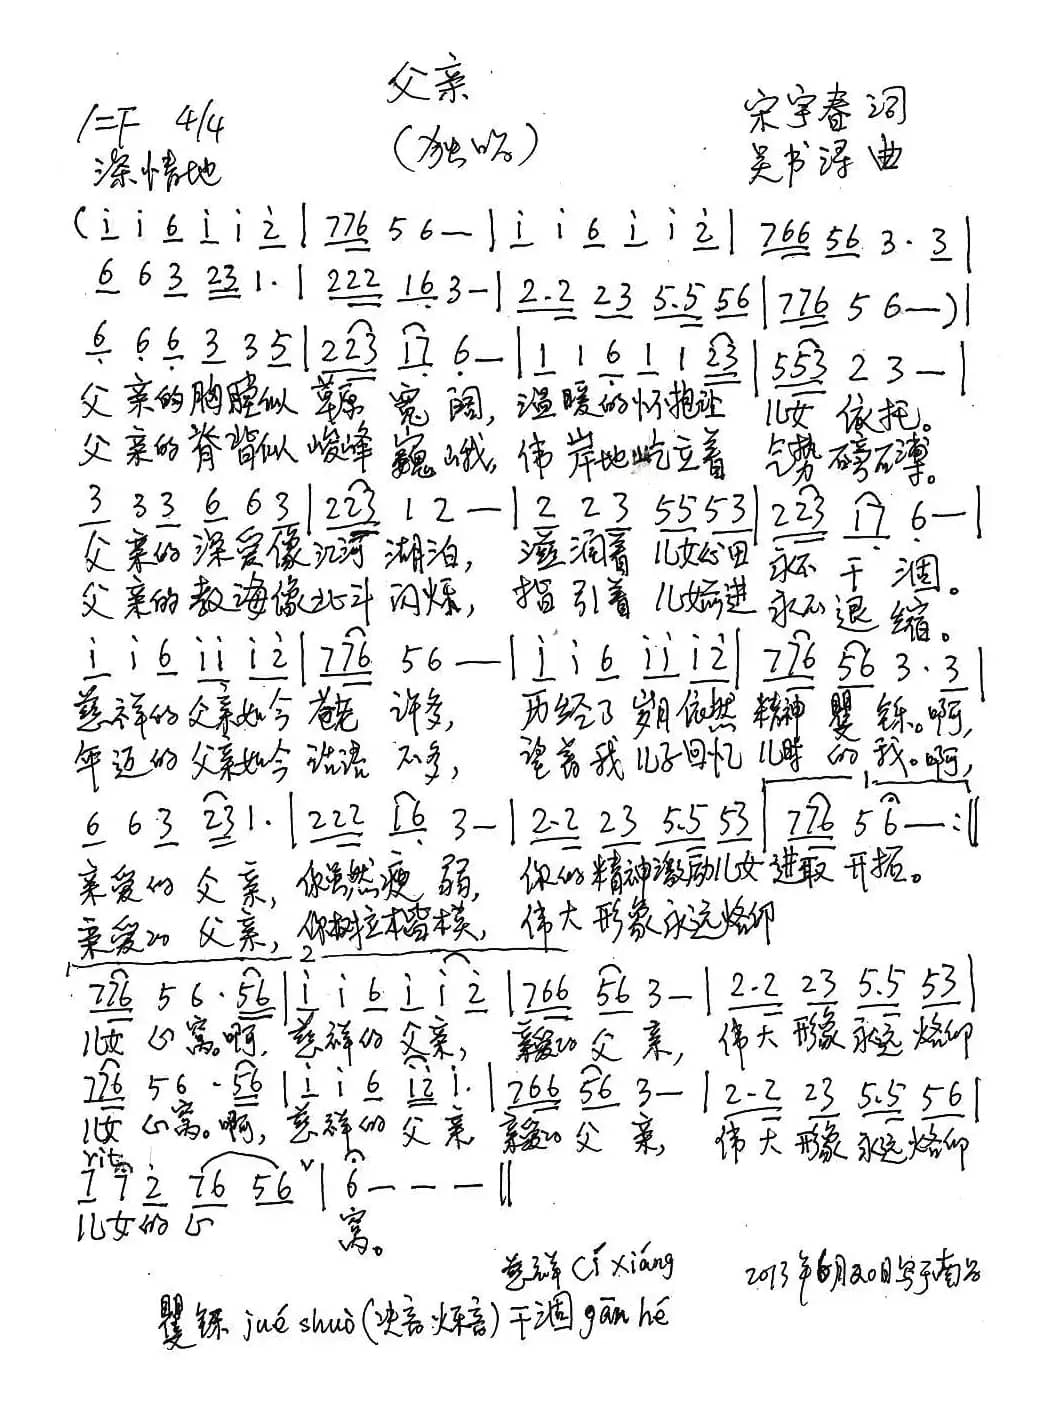 父亲
1=F 4/4
(独唱)
宋宇春 词
深情地
吴书浔 曲
(i i 6 i i 2 | 776 5 6 — | i i 6 i i 2 | 766 56 3 · 3 |
6 6 3 23 1 · | 222 16 3 — | 2·2 23 5·5 56 | 776 5 6 — ) |
6 6 6 3 3 5 | 223 17 6 — | 1 1 6 1 1 23 | 553 2 3 — |
父亲的胸膛似草原宽阔,温暖的怀抱让儿女依托。
父亲的脊背似峻峰巍峨,伟岸地屹立着气势磅礴。
3 3 3 6 6 3 | 223 1 2 — | 2 2 3 55 53 | 223 17 6 — |
父亲的深爱像江河湖泊,滋润着儿女心田永不干涸。
父亲的教诲像北斗闪烁,指引着儿女前进永不退缩。
i i 6 ii i2 | 776 5 6 — | i i 6 ii i2 | 776 56 3 · 3 |
慈祥的父亲如今苍老许多,历经了岁月依然精神矍铄。啊,
年迈的父亲如今话语不多,望着我儿子回忆儿时的我。啊,
6 6 3 23 1 · | 222 16 3 — | 2·2 23 5·5 53 | 1 776 5 6 — :||
亲爱的父亲,你虽然瘦弱,你的精神激励儿女进取开拓。
亲爱的父亲,你树立楷模,伟大形象永远烙印
2
776 5 6 · 56 | i i 6 i i 2 | 766 56 3 — | 2·2 23 5·5 53 |
儿女心窝。啊,慈祥的父亲,亲爱的父亲,伟大形象永远烙印
776 5 6 · 56 | i i 6 i2 i · | 766 56 3 — | 2·2 23 5·5 56 |
儿女心窝。啊,慈祥的父亲亲爱的父亲,伟大形象永远烙印
rit
7 7 2 76 56 ∨ | 6 — — — ||
儿女的心窝。
慈祥 cí xiáng
2013年6月20日写于南
矍铄 jué shuò (决音烁音) 干涸 gān hé